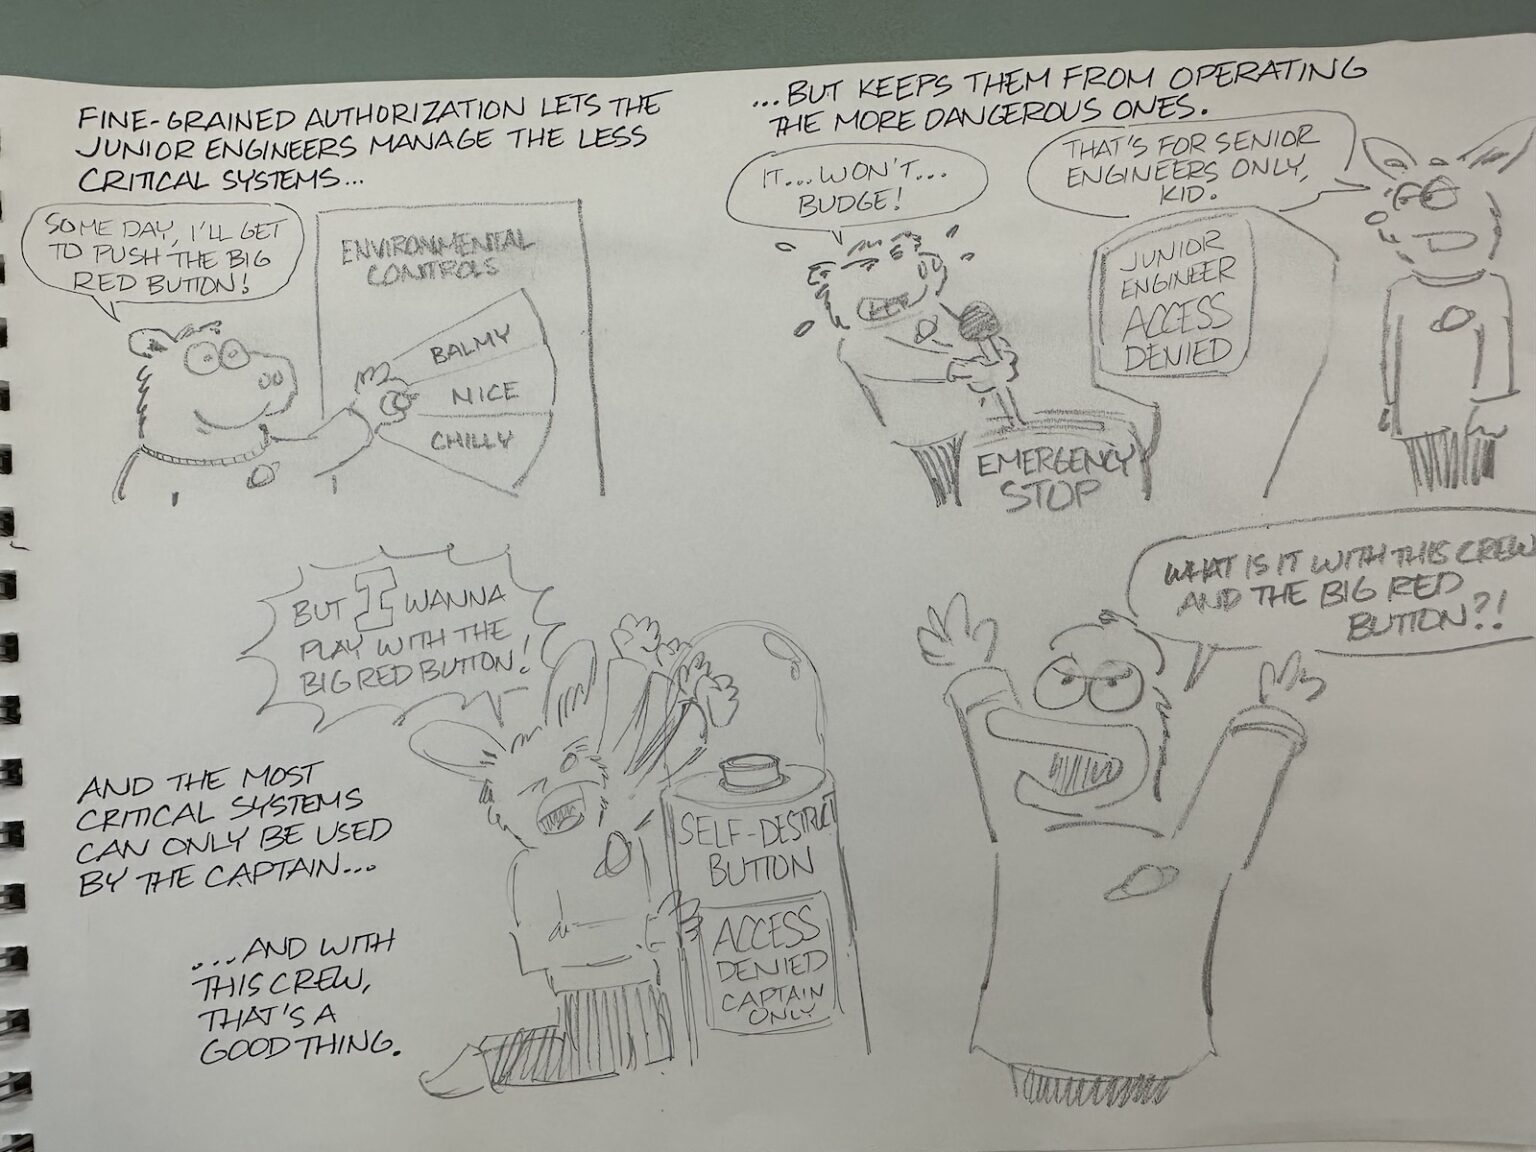 FINE-GRAINED AUTHORIZATION LETS THE
JUNIOR ENGINEERS MANAGE THE LESS
CRITICAL SYSTEMS...
SOME DAY, I'LL GET
TO PUSH THE BIG
RED BUTTON!
ENVIRONMENTAL
CONTROLS
BALMY
NICE
CHILLY
...BUT KEEPS THEM FROM OPERATING
THE MORE DANGEROUS ONES.
IT...WON'T...
BUDGE!
THAT'S FOR SENIOR
ENGINEERS ONLY,
KID.
JUNIOR
ENGINEER
ACCESS
DENIED
EMERGENCY
STOP
BUT I WANNA
PLAY WITH THE
BIG RED BUTTON!
AND THE MOST
CRITICAL SYSTEMS
CAN ONLY BE USED
BY THE CAPTAIN...
SELF-DESTRUCT
BUTTON
ACCESS
DENIED
CAPTAIN
ONLY
WHAT IS IT WITH THIS CREW
AND THE BIG RED
BUTTON?!
...AND WITH
THIS CREW,
THAT'S A
GOOD THING.